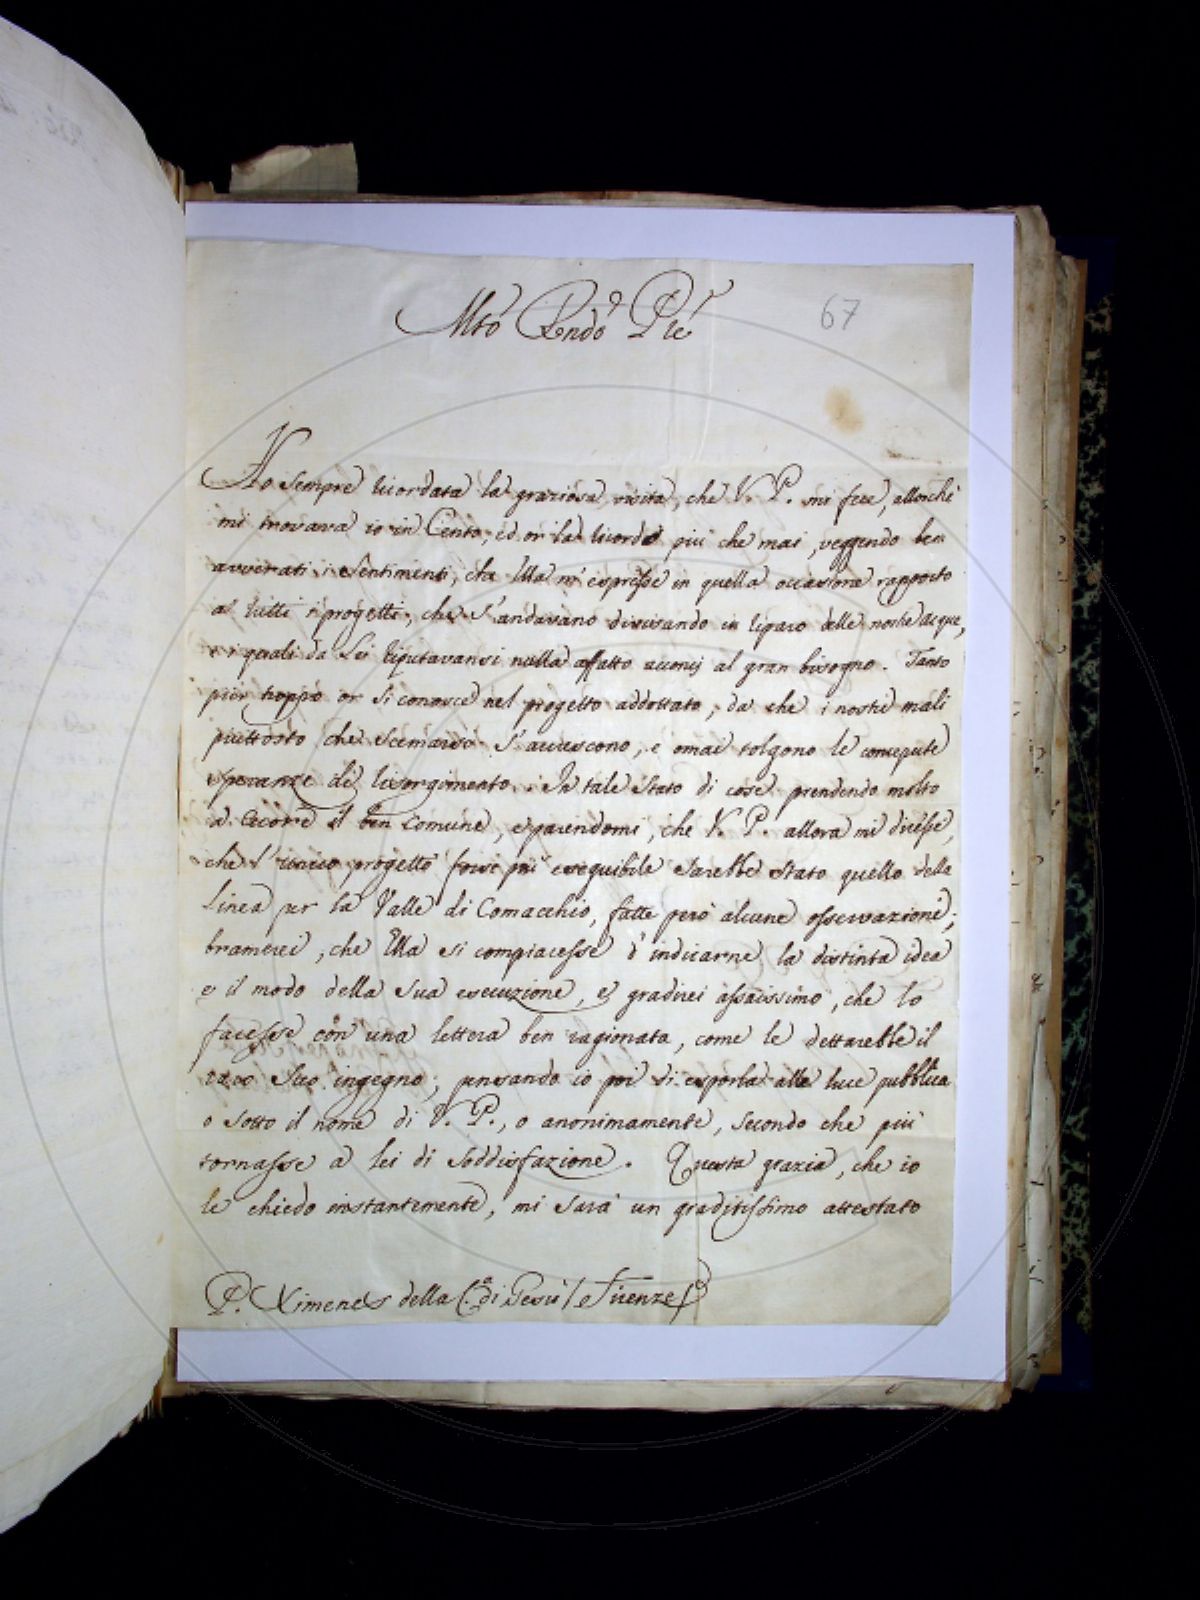 Mto Rndo Pre
67
Ho sempre ricordata la graziosa visita, che V. P. mi fece, allorchè
mi trovava io in Cento, ed or la ricordo più che mai, veggendo ben
avverati i sentimenti, che Ella m'espresse in quella occasione rapporto
a' tutti i progetti, che s'andavano divisando in riparo delle nostre acque,
e i quali da Lei riputavansi nulla affatto aconcj al gran bisogno. Tanto
pur troppo or si conosce nel progetto addottato, da che i nostri mali
piuttosto che scemarsi s'accrescono, e omai tolgono le concepute
speranze di risorgimento. In tale stato di cose prendendo molto
a cuore il ben comune, e parendomi, che V. P. allora mi dicesse,
che l'unico progetto forse più eseguibile sarebbe stato quello della
Linea per la Valle di Comacchio, fatte però alcune osservazioni;
bramerei, che Ella si compiacesse d'indicarne la distinta idea
e il modo della sua esecuzione, e gradirei assaissimo, che lo
facesse con una lettera ben ragionata, come le dettarebbe il
raro suo ingegno, pensando io poi di esporla alla luce pubblica
o sotto il nome di V. P., o anonimamente, secondo che più
tornasse a lei di soddisfazione. Questa grazia, che io
le chiedo instantemente, mi sarà un graditissimo attestato
P. Ximenes della C.a di Gesù / e Firenze